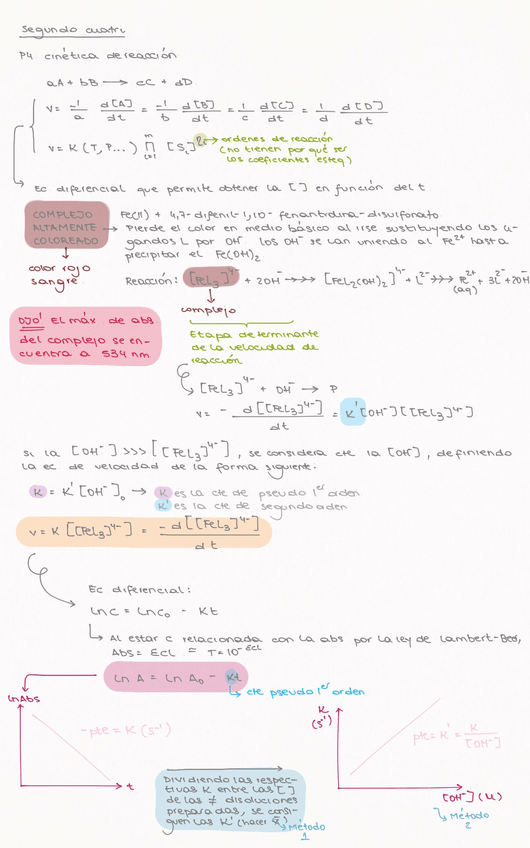 Segundo cuatri
P4 cinética de reacción
aA + bB ⟶ cC + dD
V = -1/a d[A]/dt = -1/b d[B]/dt = 1/c d[C]/dt = 1/d d[D]/dt
V = K (T, P...) ∏ᵢ₌₁ᵐ [Sᵢ]^Pᵢ → ordenes de reacción
(no tienen por qué ser
los coeficientes esteq)
Ec diferencial que permite obtener la [ ] en función del t
COMPLEJO
ALTAMENTE
COLOREADO
color rojo
sangre
Fe(II) + 4,7-difenil-1,10-fenantrolina-disulfonato
Pierde el color en medio básico al irse sustituyendo los li-
gandos L por OH⁻ los OH⁻ se van uniendo al Fe²⁺ hasta
precipitar el Fe(OH)₂
Reacción: [FeL₃]⁴⁻ + 2OH⁻ →→→ [FeL₂(OH)₂]⁴⁻ + L²⁻ →→→ Fe²⁺(aq) + 3L²⁻ + 2OH⁻
complejo
OJO! El máx de abs
del complejo se en-
cuentra a 534 nm
Etapa determinante
de la velocidad de
reacción
[FeL₃]⁴⁻ + OH⁻ ⟶ P
V = - d[[FeL₃]⁴⁻]/dt = K'[OH⁻][[FeL₃]⁴⁻]
si la [OH⁻] >>> [[FeL₃]⁴⁻], se considera cte la [OH⁻], definiendo
la ec de velocidad de la forma siguiente:
K = K'[OH⁻]₀ → K es la cte de pseudo 1er orden
K' es la cte de segundo orden
V = K [[FeL₃]⁴⁻] = -d[[FeL₃]⁴⁻]/dt
Ec diferencial:
Ln C = Ln C₀ - Kt
Al estar C relacionada con la abs por la ley de Lambert-Beer,
Abs = Ecl = T = 10^-Ecl
Ln A = Ln A₀ - Kt
cte pseudo 1er orden
Ln Abs
-pte = K (s⁻¹)
t
Dividiendo las respec-
tivas K entre las [ ]
de las ≠ disoluciones
preparadas, se consi-
guen las K' (hacer x̄)
Método
1
K
(s⁻¹)
pte = K' = K/[OH⁻]
[OH⁻] (M)
Método
2